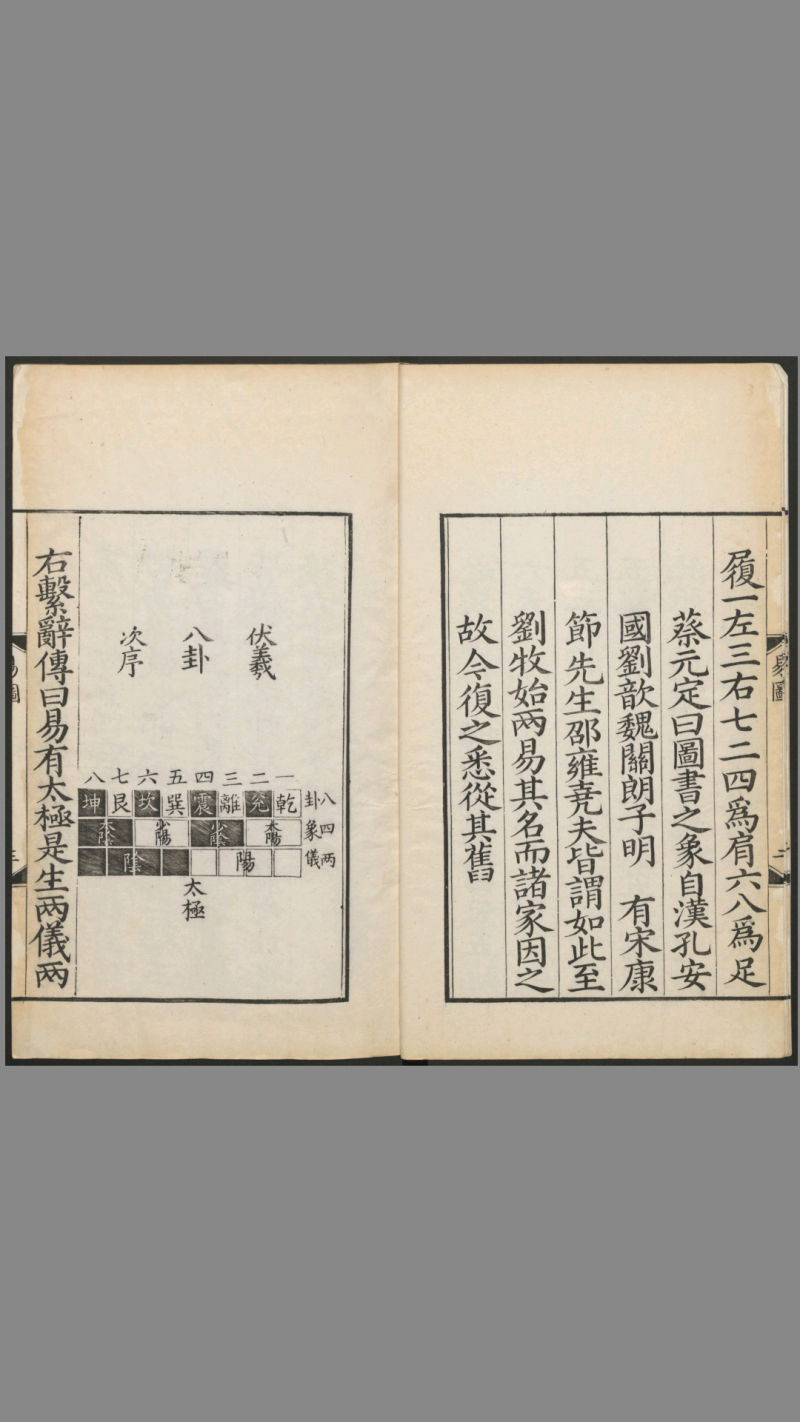 履一左三右七二四爲肩六八爲足
蔡元定曰圖書之象自漢孔安
國劉歆魏關朗子明　有宋康
節先生邵雍堯夫皆謂如此至
劉牧始兩易其名而諸家因之
故今復之悉從其舊
伏羲
八卦
次序
一二三四五六七八
八卦
乾兌離震巽坎艮坤
四象
太陽
少陰
少陽
太陰
兩儀
陽
陰
太極
右繫辭傳曰易有太極是生兩儀兩